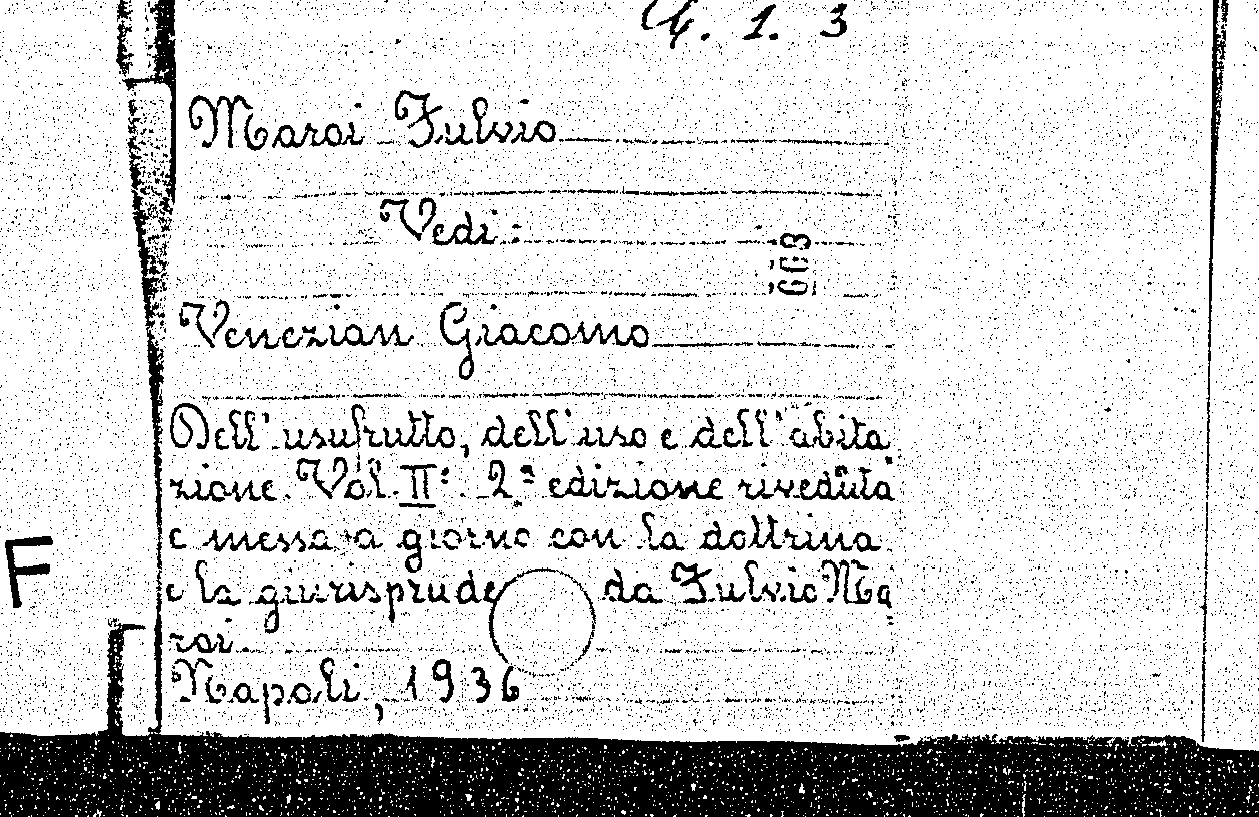 G. 1. 3
Maroi Fulvio
Vedi:
663
Venezian Giacomo
Dell'usufrutto, dell'uso e dell'abita
zione. Vol. II°. 2ª edizione riveduta
e messa a giorno con la dottrina
e la giurisprude da Fulvio Ma
roi.
Napoli, 1936
F